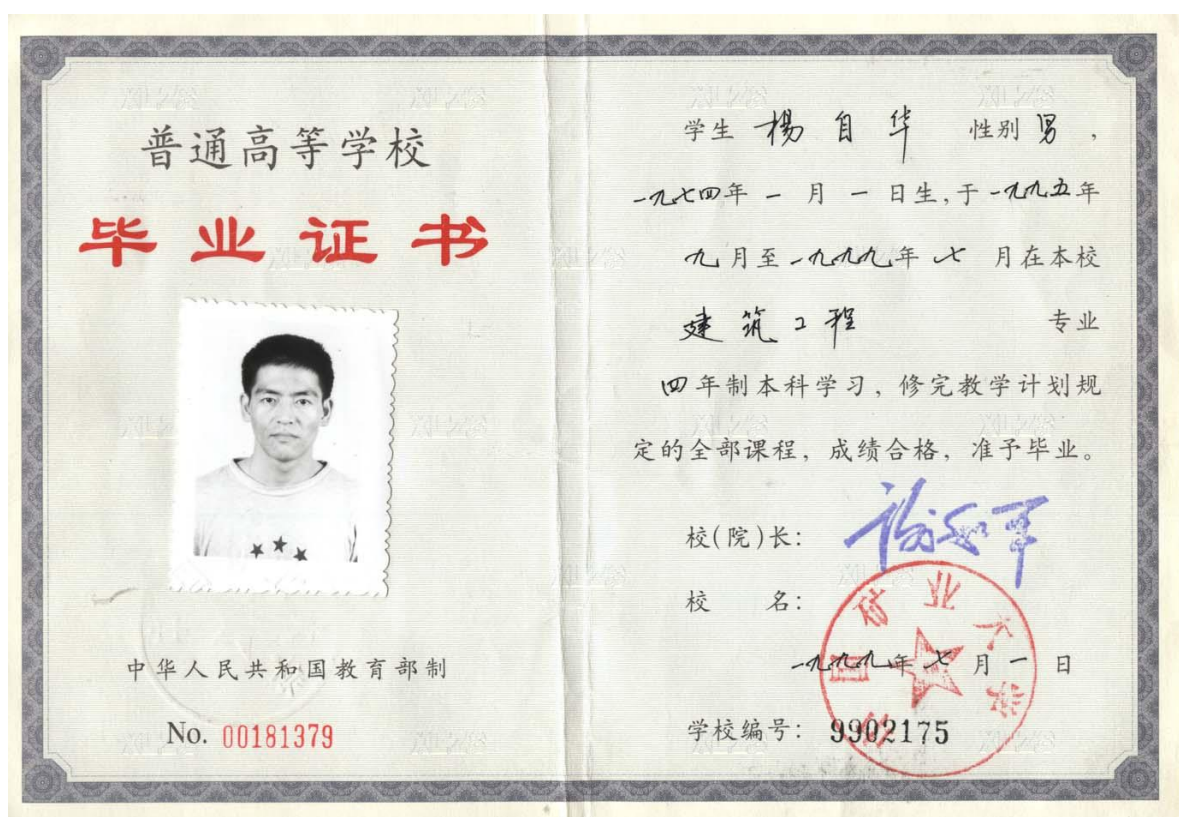 普通高等学校
毕业证书
中华人民共和国教育部制
No. 00181379
学生 楊自华 性别 男，
一九七四年 一 月 一 日生，于一九九五年
九月至一九九九年 七 月在本校
建筑工程 专业
四年制本科学习，修完教学计划规
定的全部课程，成绩合格，准予毕业。
校(院)长：
校 名：
中国矿业大学
一九九九年 七 月 一 日
学校编号：9902175